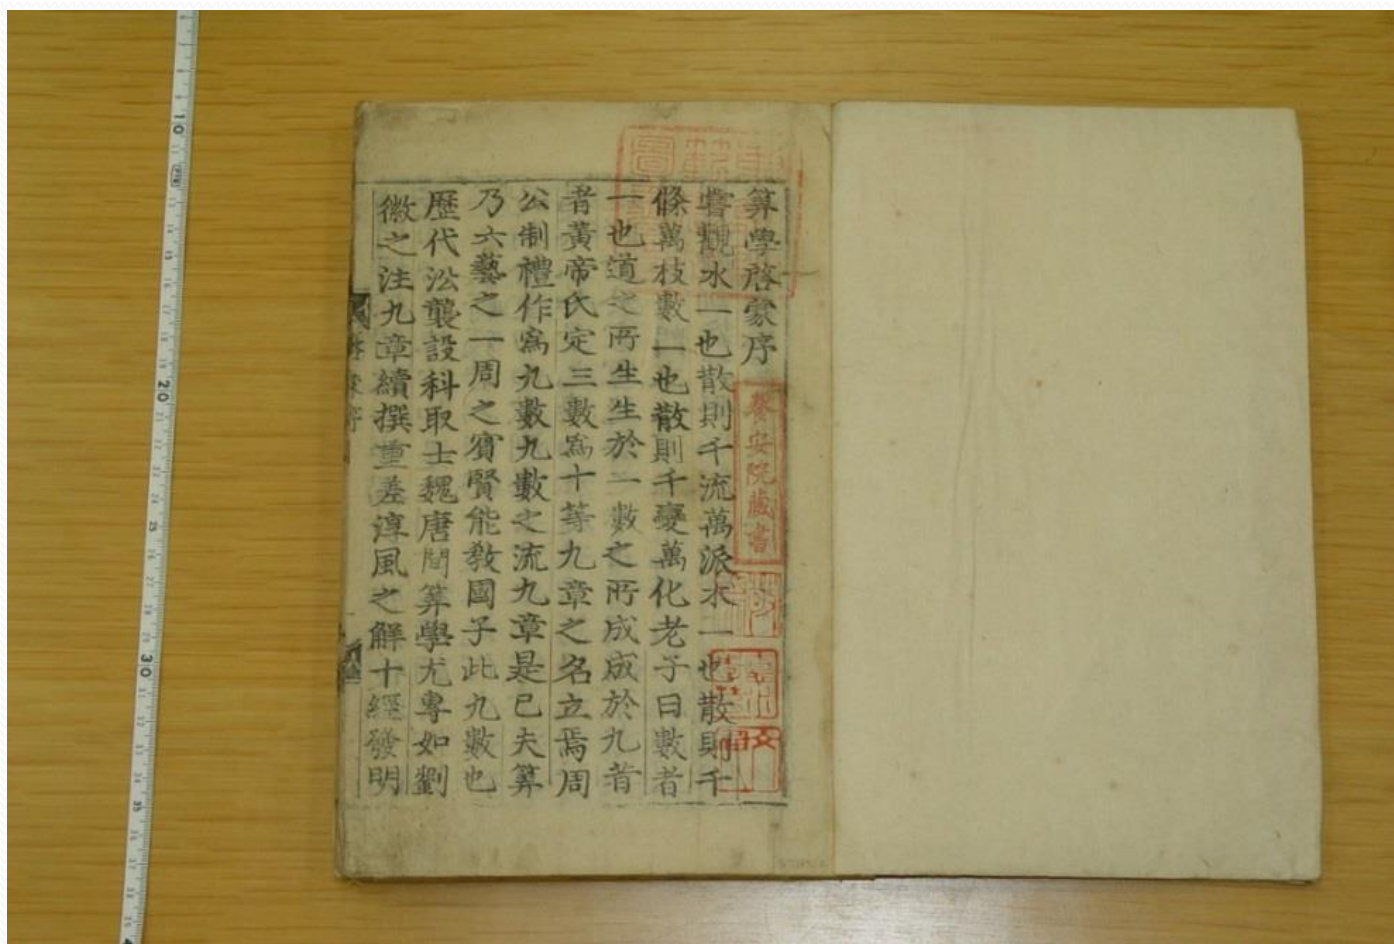 算學啓蒙序
嘗觀水一也散則千流萬派木一也散則千
條萬枝數一也散則千變萬化老子曰數者
一也道之所生生於一數之所成成於九昔
者黃帝氏定三數爲十等九章之名立焉周
公制禮作爲九數九數之流九章是已夫算
乃六藝之一周之賓賢能教國子此九數也
歷代沿襲設科取士魏唐間算學尤專如劉
徽之注九章續撰重差淳風之解十經發明
養安院藏書
10
20
30